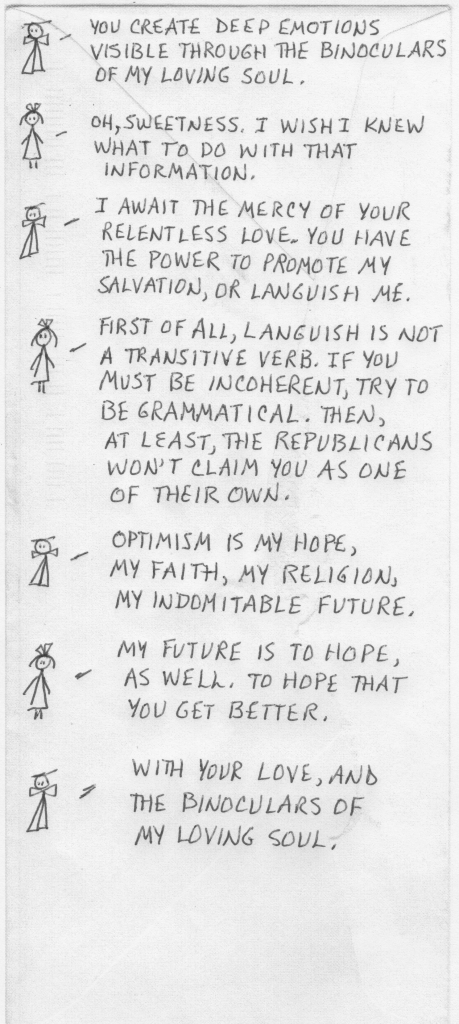 YOU CREATE DEEP EMOTIONS
VISIBLE THROUGH THE BINOCULARS
OF MY LOVING SOUL.
OH, SWEETNESS. I WISH I KNEW
WHAT TO DO WITH THAT
INFORMATION.
I AWAIT THE MERCY OF YOUR
RELENTLESS LOVE. YOU HAVE
THE POWER TO PROMOTE MY
SALVATION, OR LANGUISH ME.
FIRST OF ALL, LANGUISH IS NOT
A TRANSITIVE VERB. IF YOU
MUST BE INCOHERENT, TRY TO
BE GRAMMATICAL. THEN,
AT LEAST, THE REPUBLICANS
WON'T CLAIM YOU AS ONE
OF THEIR OWN.
OPTIMISM IS MY HOPE,
MY FAITH, MY RELIGION,
MY INDOMITABLE FUTURE.
MY FUTURE IS TO HOPE,
AS WELL. TO HOPE THAT
YOU GET BETTER.
WITH YOUR LOVE, AND
THE BINOCULARS OF
MY LOVING SOUL.